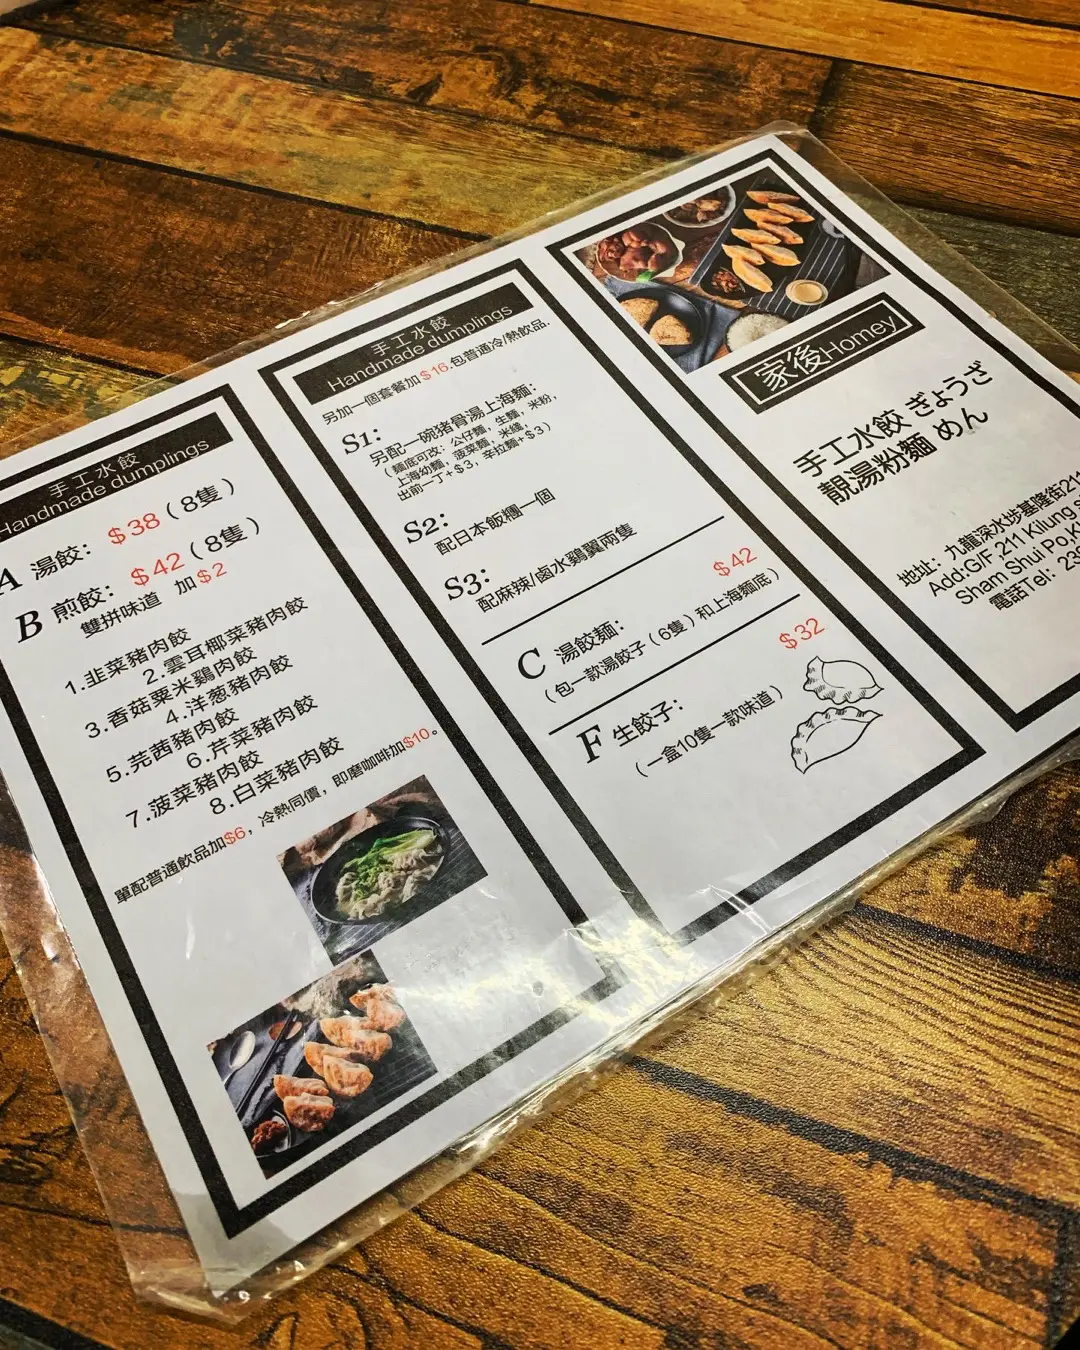 手工水餃
Handmade dumplings
A 湯餃： $38（8隻）
B 煎餃： $42（8隻）
雙拼味道 加$2
1.韭菜豬肉餃
2.雲耳椰菜豬肉餃
3.香菇粟米鷄肉餃
4.洋葱豬肉餃
5.芫茜豬肉餃
6.芹菜豬肉餃
7.菠菜豬肉餃
8.白菜豬肉餃
單配普通飲品加$6，冷熱同價，即磨咖啡加$10。
手工水餃
Handmade dumplings
另加一個套餐加$16.包普通冷/熱飲品.
S1:
另配一碗猪骨湯上海麵：
（麵底可改：公仔麵，生麵，米粉，
上海幼麵，菠菜麵，米綫，
出前一丁+$3，辛拉麵+$3）
S2:
配日本飯糰一個
S3:
配麻辣/鹵水鷄翼兩隻
$42
C 湯餃麵：
（包一款湯餃子（6隻）和上海麵底）
$32
F 生餃子：
（一盒10隻一款味道）
家後Homey
手工水餃 ぎょうざ
靚湯粉麵 めん
地址：九龍深水埗基隆街211
Add:G/F 211 Kilung
Sham Shui Po,K
電話Tel：23